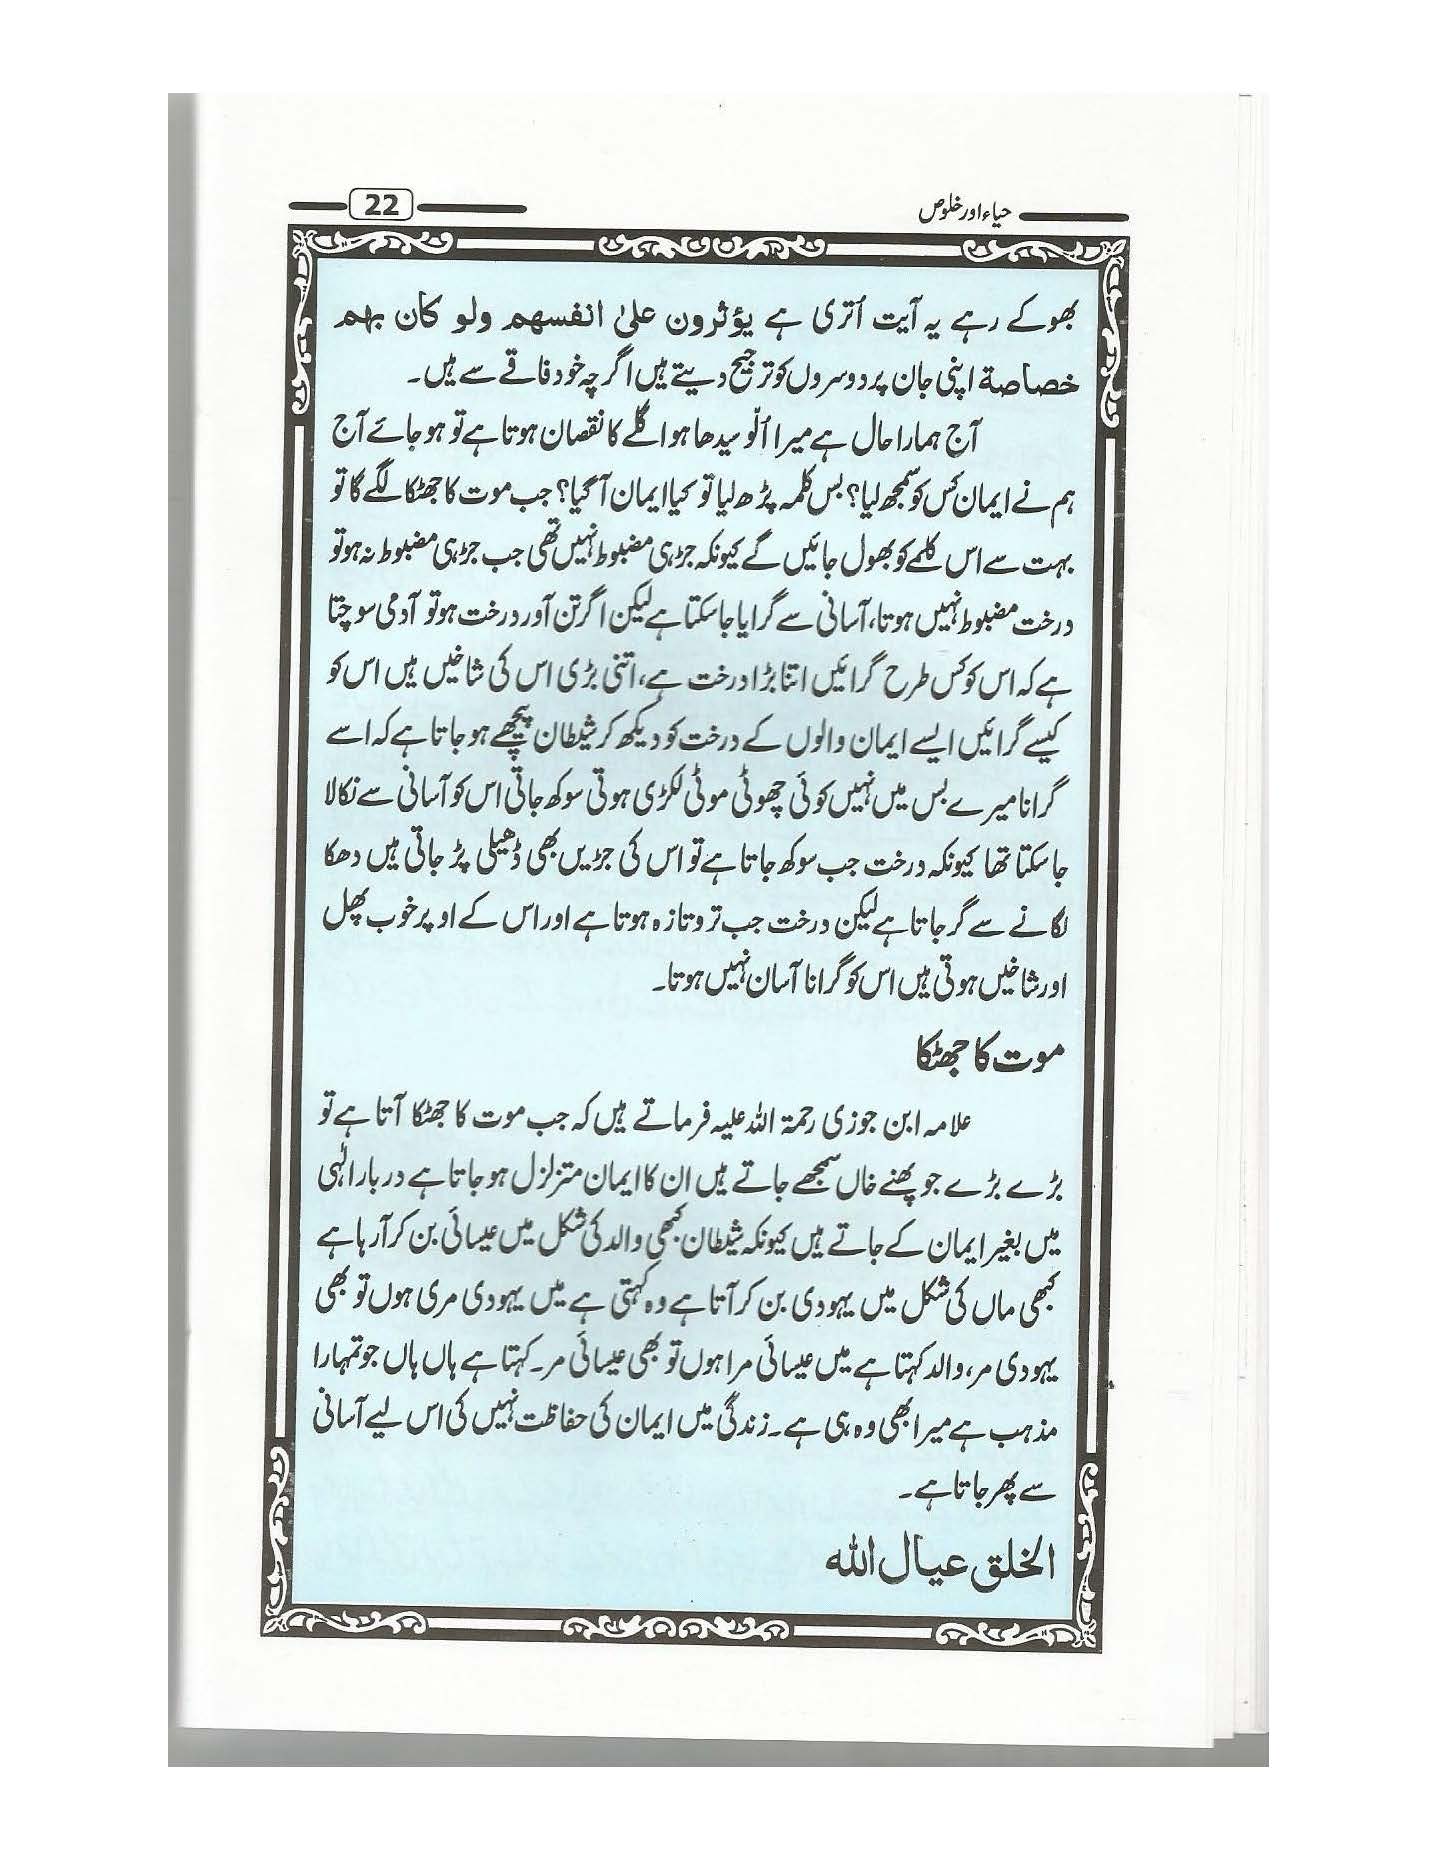 حیاء اور خلوص
22
بھوکے رہے یہ آیت اُتری ہے یؤثرون علیٰ انفسھم ولو کان بھم
خصاصة اپنی جان پر دوسروں کو ترجیح دیتے ہیں اگرچہ خود فاقے سے ہیں۔
آج ہمارا حال ہے میرا اُلّو سیدھا ہو اگلے کا نقصان ہوتا ہے تو ہو جائے آج
ہم نے ایمان کس کو سمجھ لیا؟ بس کلمہ پڑھ لیا تو کیا ایمان آ گیا؟ جب موت کا جھٹکا لگے گا تو
بہت سے اس کلمے کو بھول جائیں گے کیونکہ جڑ ہی مضبوط نہیں تھی جب جڑ ہی مضبوط نہ ہو تو
درخت مضبوط نہیں ہوتا، آسانی سے گرایا جا سکتا ہے لیکن اگر تن آور درخت ہو تو آدمی سوچتا
ہے کہ اس کو کس طرح گرائیں اتنا بڑا درخت ہے، اتنی بڑی اس کی شاخیں ہیں اس کو
کیسے گرائیں ایسے ایمان والوں کے درخت کو دیکھ کر شیطان پیچھے ہو جاتا ہے کہ اسے
گرانا میرے بس میں نہیں کوئی چھوٹی موٹی لکڑی ہوتی سوکھ جاتی اس کو آسانی سے نکالا
جا سکتا تھا کیونکہ درخت جب سوکھ جاتا ہے تو اس کی جڑیں بھی ڈھیلی پڑ جاتی ہیں دھکا
لگانے سے گر جاتا ہے لیکن درخت جب تر و تازہ ہوتا ہے اور اس کے اوپر خوب پھل
اور شاخیں ہوتی ہیں اس کو گرانا آسان نہیں ہوتا۔
موت کا جھٹکا
علامہ ابن جوزی رحمۃ اللہ علیہ فرماتے ہیں کہ جب موت کا جھٹکا آتا ہے تو
بڑے بڑے جو پھنے خاں سمجھے جاتے ہیں ان کا ایمان متزلزل ہو جاتا ہے دربار الٰہی
میں بغیر ایمان کے جاتے ہیں کیونکہ شیطان کبھی والد کی شکل میں عیسائی بن کر آ رہا ہے
کبھی ماں کی شکل میں یہودی بن کر آتا ہے وہ کہتی ہے میں یہودی مری ہوں تو بھی
یہودی مر، والد کہتا ہے میں عیسائی مرا ہوں تو بھی عیسائی مر۔ کہتا ہے ہاں ہاں جو تمہارا
مذہب ہے میرا بھی وہ ہی ہے۔ زندگی میں ایمان کی حفاظت نہیں کی اس لیے آسانی
سے پھر جاتا ہے۔
الخلق عیال اللہ